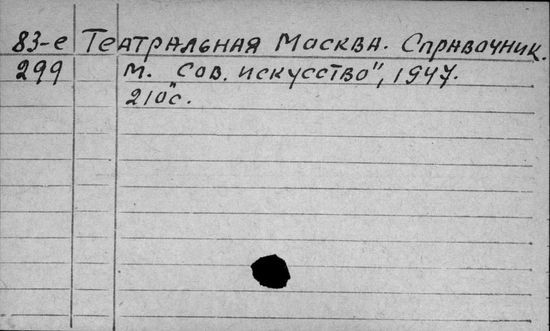 83-е Театральная Москва. Справочник.
299 М. „Сов. искусство", 1947.
210с.